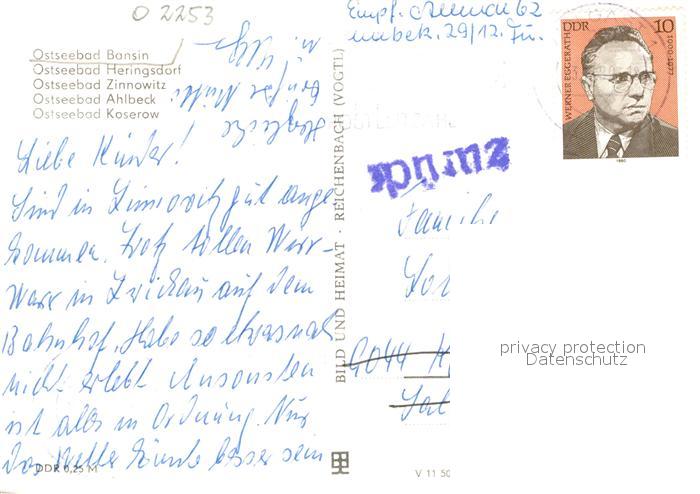 O 2253
Ostseebad Bansin
Ostseebad Heringsdorf
Ostseebad Zinnowitz
Ostseebad Ahlbeck
Ostseebad Koserow
Liebe Kinder!
Sind in Zinnowitz gut ange
kommen. Trotz tollen Wirr-
Warr in Zwickau auf dem
Bahnhof. Habe so etwas noch
nicht erlebt. Ansonsten
ist alles in Ordnung. Nur
das Wetter könnte besser sein
Herzliche
Grüße Mutti
DDR 0,25 M
BILD UND HEIMAT · REICHENBACH (VOGTL)
V 11 50
Empf. 62
unbek. 29/12.
zurück
DDR 10
WERNER EGGERATH
1900-1977
1980
Familie
9044
privacy protection
Datenschutz